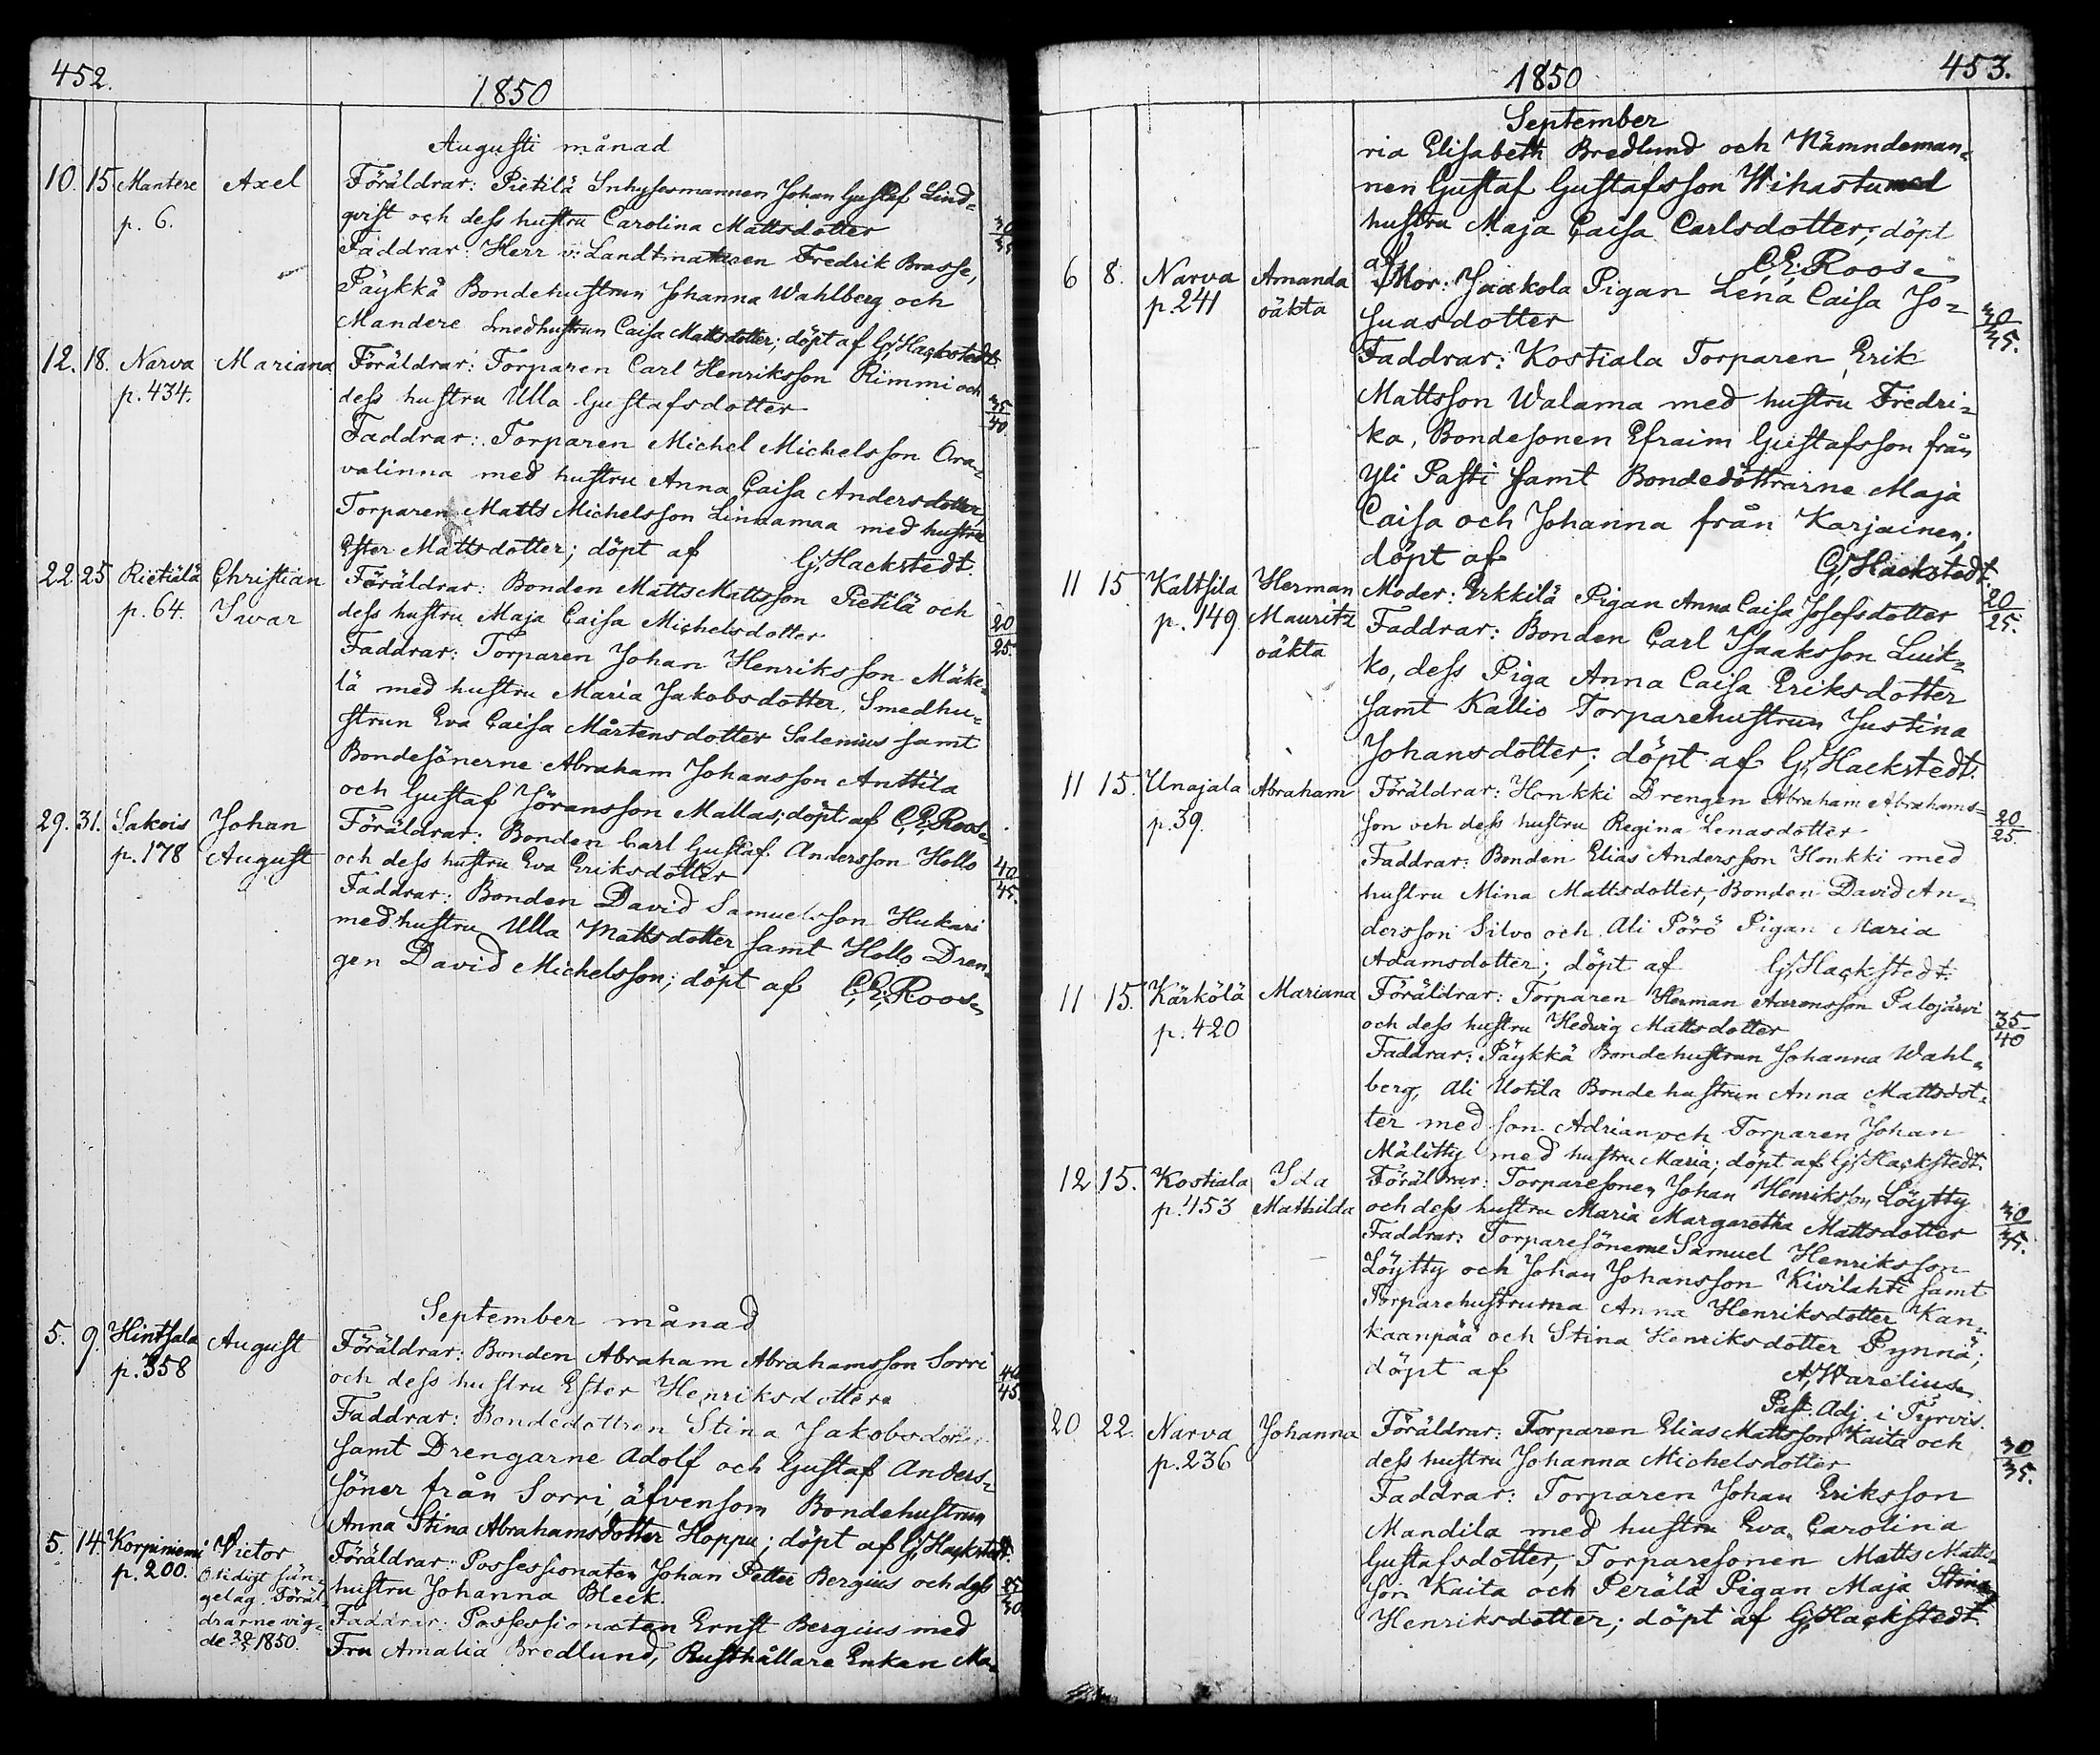 452.
1850
Augusti månad
10. 15 Mantere Axel Föräldrar: Pietilä Inhysesmannen Johan Gustaf Lind=
p. 6. qvist och dess hustru Carolina Mattsdotter 30/35
Faddrar: Herr v: Landtmätaren Fredrik Brasse,
Päykkä Bondehustrun Johanna Wahlberg och
Mandere Smedhustrun Caisa Mattsdotter; döpt af G. Hackstedt.
12. 18. Narva Mariana Föräldrar: Torparen Carl Henriksson Rimmi och
p. 434. dess hustru Ulla Gustafsdotter 35/40
Faddrar: Torparen Michel Michelsson Ora=
valinna med hustru Anna Caisa Andersdotter,
Torparen Matts Michelsson Linnamaa med hustru
Ester Mattsdotter; döpt af G. Hackstedt.
22 25 Rietiälä Christian Föräldrar: Bonden Matts Mattsson Pietilä och
p. 64. Iwar dess hustru Maja Caisa Michelsdotter 20/25.
Faddrar: Torparen Johan Henriksson Mäke=
lä med hustru Maria Jakobsdotter, Smedhu=
strun Eva Caisa Mårtensdotter Salenius samt
Bondesönerne Abraham Johansson Anttila
och Gustaf Jöransson Mallas; döpt af C. E. Roos
29. 31. Sakois Johan Föräldrar: Bonden Carl Gustaf Andersson Hollo
p. 178 August och dess hustru Eva Eriksdotter 40/45
Faddrar: Bonden David Samuelsson Hukari
med hustru Ulla Mattsdotter samt Hollo Dren=
gen David Michelsson; döpt af C. E. Roos
September månad
5. 9. Hintsala August Föräldrar: Bonden Abraham Abrahamsson Sorri
p. 358 och dess hustru Ester Henriksdotter 40/45
Faddrar: Bondedottren Stina Jakobsdotter
samt Drengarne Adolf och Gustaf Anders=
söner från Sorri, äfvensom Bondehustrun
Anna Stina Abrahamsdotter Hoppu; döpt af G. Hackstedt.
5. 14. Korpiniemi Victor Föräldrar: Possessionaten Johan Petter Bergius och dess
p. 200. Otidigt sän= hustru Johanna Bleck. 25/30
gelag. Föräl=
drarne vig= Faddrar: Possessionaten Ernst Bergius med
de 1850. Fru Amalia Bredlund, Rusthållare Enkan Ma=
453.
1850
September
ria Elisabeth Bredlund och Nämndeman=
nen Gustaf Gustafsson Wihastu med
hustru Maja Caisa Carlsdotter; döpt
af C. E. Roos
6 8. Narva Amanda Mor: Jaakola Pigan Lena Caisa Jo=
p. 241 oäkta suasdotter 30/35.
Faddrar: Kostiala Torparen Erik
Mattsson Walama med hustru Fredri=
ka, Bondesonen Efraim Gustafsson från
Yli Pasti samt Bondedöttrarne Maja
Caisa och Johanna från Karjainen;
döpt af G. Hackstedt.
11 15 Kaltsila Herman Moder: Erkkilä Pigan Anna Caisa Josefsdotter 20/25.
p. 149 Mauritz Faddrar: Bonden Carl Isaaksson Luik=
oäkta ko, dess Piga Anna Caisa Eriksdotter
samt Kallio Torparehustrun Justina
Johansdotter; döpt af G. Hackstedt.
11 15. Unajala Abraham Föräldrar: Honkki Drengen Abraham Abrahams=
p. 39. son och dess hustru Regina Lenasdotter 20/25
Faddrar: Bonden Elias Andersson Honkki med
hustru Mina Mattsdotter, Bonden David An=
dersson Silvo och Ali Pörö Pigan Maria
Adamsdotter; döpt af G. Hackstedt.
11 15. Kärkölä Mariana Föräldrar: Torparen Herman Aaronsson Palojärvi
p. 420 och dess hustru Hedvig Mattsdotter 35/40
Faddrar: Päykkä Bondehustrun Johanna Wahl=
berg, Ali Uotila Bondehustrun Anna Mattsdot=
ter med son Adrian och Torparen Johan
Mälitty med hustru Maria; döpt af G. Hackstedt.
12 15. Kostiala Ida Föräldrar: Torparesonen Johan Henriksson Löytty
p. 453 Mathilda och dess hustru Maria Margaretha Mattsdotter 30/35.
Faddrar: Torparesönerne Samuel Henriksson
Löytty och Johan Johansson Kivilahti samt
Torparehustrurna Anna Henriksdotter Kan=
kaanpää och Stina Henriksdotter Pynnä;
döpt af A. Warelius
Past. Adj. i Tyrvis.
20 22. Narva Johanna Föräldrar: Torparen Elias Mattsson Kaita och
p. 236 dess hustru Johanna Michelsdotter 30/35.
Faddrar: Torparen Johan Eriksson
Mandila med hustru Eva Carolina
Gustafsdotter, Torparesonen Matts Matts=
son Kaita och Perälä Pigan Maja Stina
Henriksdotter; döpt af G. Hackstedt.